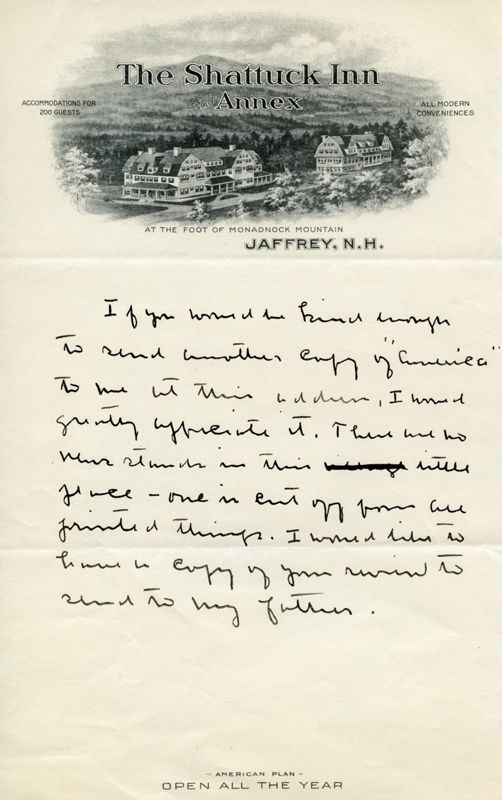 The Shattuck Inn
and Annex
ACCOMMODATIONS FOR
200 GUESTS
ALL MODERN
CONVENIENCES
AT THE FOOT OF MONADNOCK MOUNTAIN
JAFFREY, N.H.
If you would be kind enough
to send another copy of "America"
to me at this address, I would
greatly appreciate it. There are no
news stands in this little
place – one is cut off from all
printed things. I would like to
have a copy of your review to
send to my father.
– AMERICAN PLAN –
OPEN ALL THE YEAR